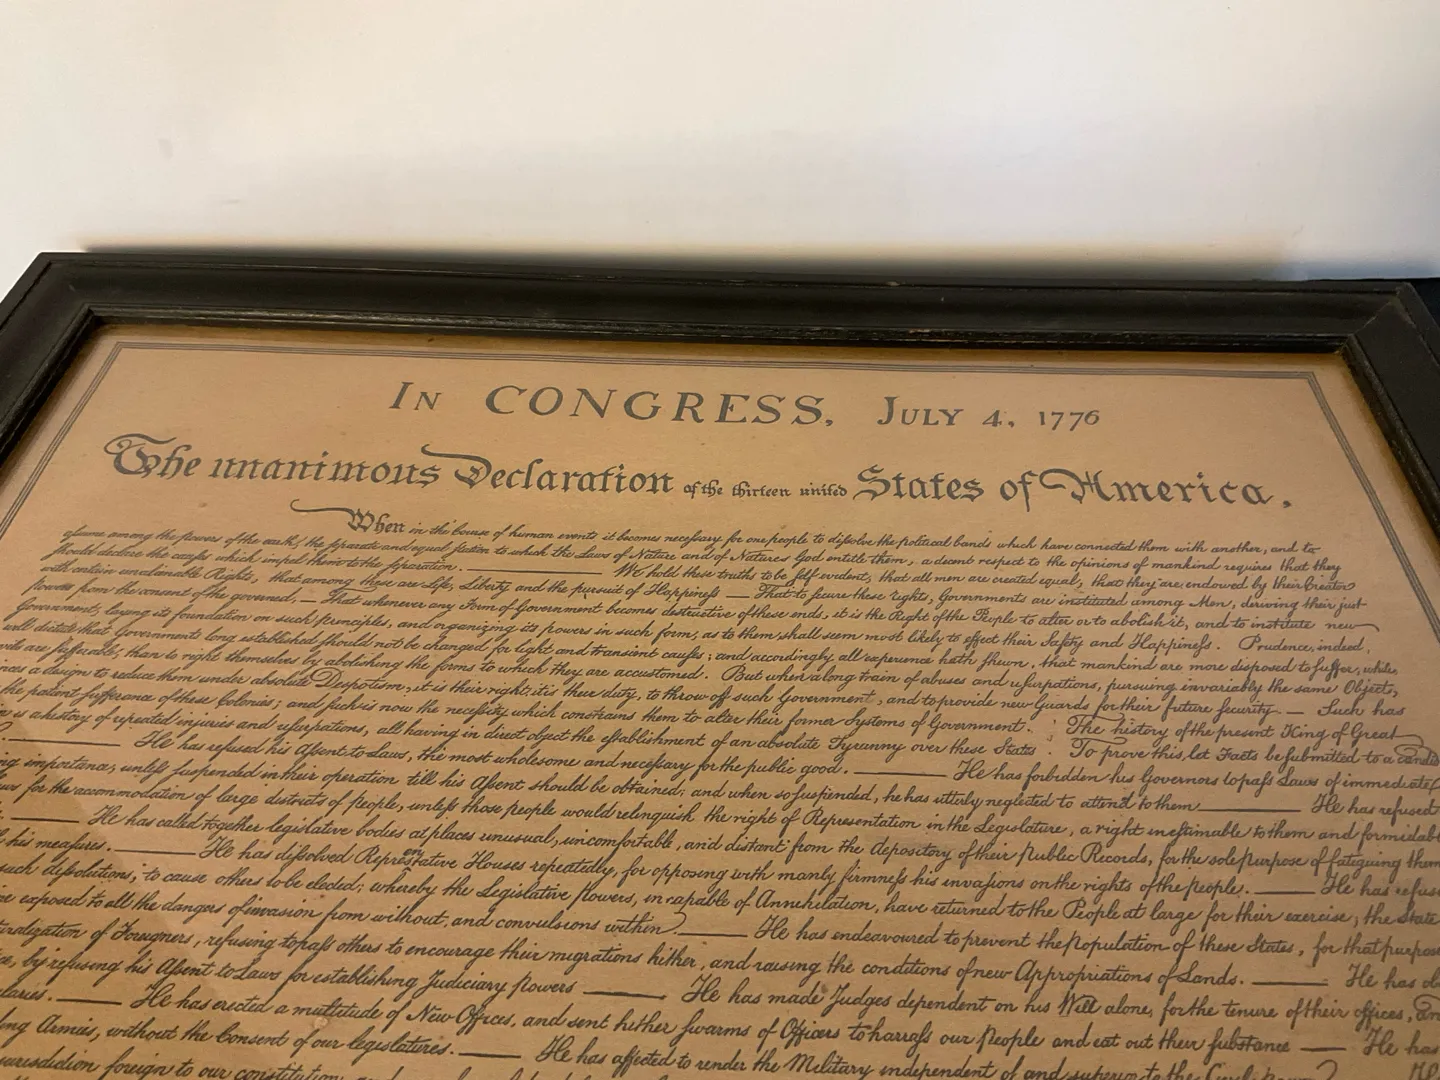 IN CONGRESS, JULY 4, 1776
The unanimous Declaration of the thirteen united States of America,
When in the Course of human events it becomes necessary for one people to dissolve the political bands which have connected them with another, and to
assume among the powers of the earth, the separate and equal station to which the Laws of Nature and of Nature's God entitle them, a decent respect to the opinions of mankind requires that they
should declare the causes which impel them to the separation. — We hold these truths to be self evident, that all men are created equal, that they are endowed by their Creator
with certain unalienable Rights, that among these are Life, Liberty and the pursuit of Happiness — That to secure these rights, Governments are instituted among Men, deriving their just
powers from the consent of the governed, — That whenever any Form of Government becomes destructive of these ends, it is the Right of the People to alter or to abolish it, and to institute new
Government, laying its foundation on such principles, and organizing its powers in such form, as to them shall seem most likely to effect their Safety and Happiness. Prudence, indeed,
will dictate that Governments long established should not be changed for light and transient causes; and accordingly all experience hath shewn, that mankind are more disposed to suffer, while
evils are sufferable, than to right themselves by abolishing the forms to which they are accustomed. But when a long train of abuses and usurpations, pursuing invariably the same Object,
a design to reduce them under absolute Despotism, it is their right, it is their duty, to throw off such Government, and to provide new Guards for their future security. — Such has
the patient sufferance of these Colonies; and such is now the necessity which constrains them to alter their former Systems of Government. The history of the present King of Great
is a history of repeated injuries and usurpations, all having in direct object the establishment of an absolute Tyranny over these States. To prove this, let Facts be submitted to a candid
— He has refused his Assent to Laws, the most wholesome and necessary for the public good. — He has forbidden his Governors to pass Laws of immediate
importance, unless suspended in their operation till his Assent should be obtained; and when so suspended, he has utterly neglected to attend to them — He has refused
for the accommodation of large districts of people, unless those people would relinquish the right of Representation in the Legislature, a right inestimable to them and formidable
— He has called together legislative bodies at places unusual, uncomfortable, and distant from the depository of their Public Records, for the sole purpose of fatiguing them
his measures. — He has dissolved Representative Houses repeatedly, for opposing with manly firmness his invasions on the rights of the people. — He has
such dissolutions, to cause others to be elected; whereby the Legislative powers, incapable of Annihilation, have returned to the People at large for their exercise; the State
exposed to all the dangers of invasion from without, and convulsions within. — He has endeavoured to prevent the population of these States, for that
of Foreigners, refusing to pass others to encourage their migrations hither, and raising the conditions of new Appropriations of Lands. — He has
by refusing his Assent to Laws for establishing Judiciary powers — He has made Judges dependent on his Will alone, for the tenure of their offices,
— He has erected a multitude of New Offices, and sent hither swarms of Officers to harrass our People and eat out their substance — He has
Armies, without the Consent of our legislatures. — He has affected to render the Military independent of and superior to the Civil power
foreign to our constitution,